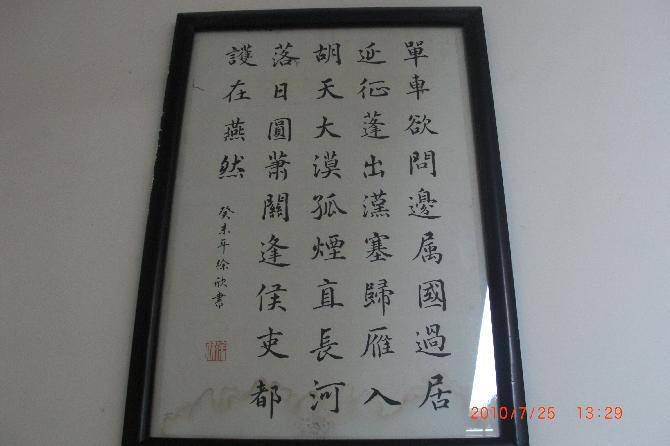 單車欲問邊属國過居
延征蓬出漢塞歸雁入
胡天大漠孤煙直長河
落日圓萧關逢侯吏都
護在燕然
癸未年徐欣書
2010/7/25 13:29